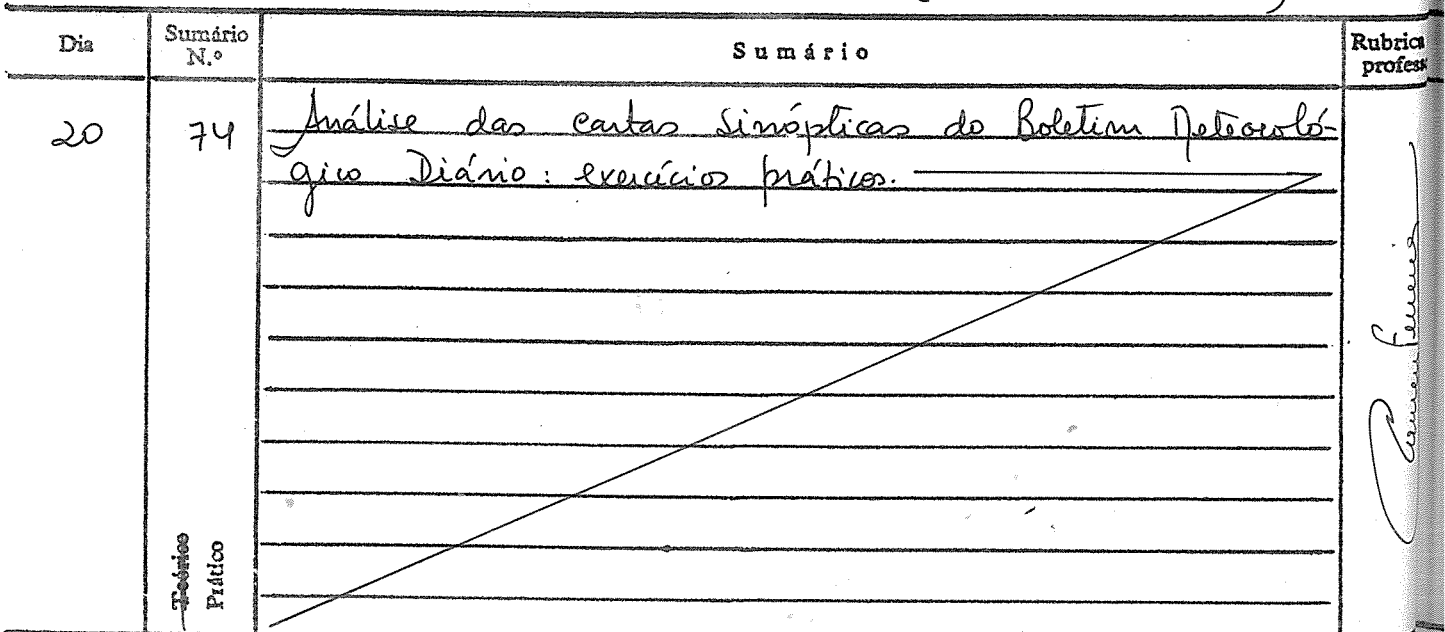 Dia
Sumário N.º
Sumário
Rubrica
profess
20
74
Análise das cartas sinópticas do Boletim Meteoroló-
gico Diário: exercícios práticos.
Teórico
Prático
Ferreira